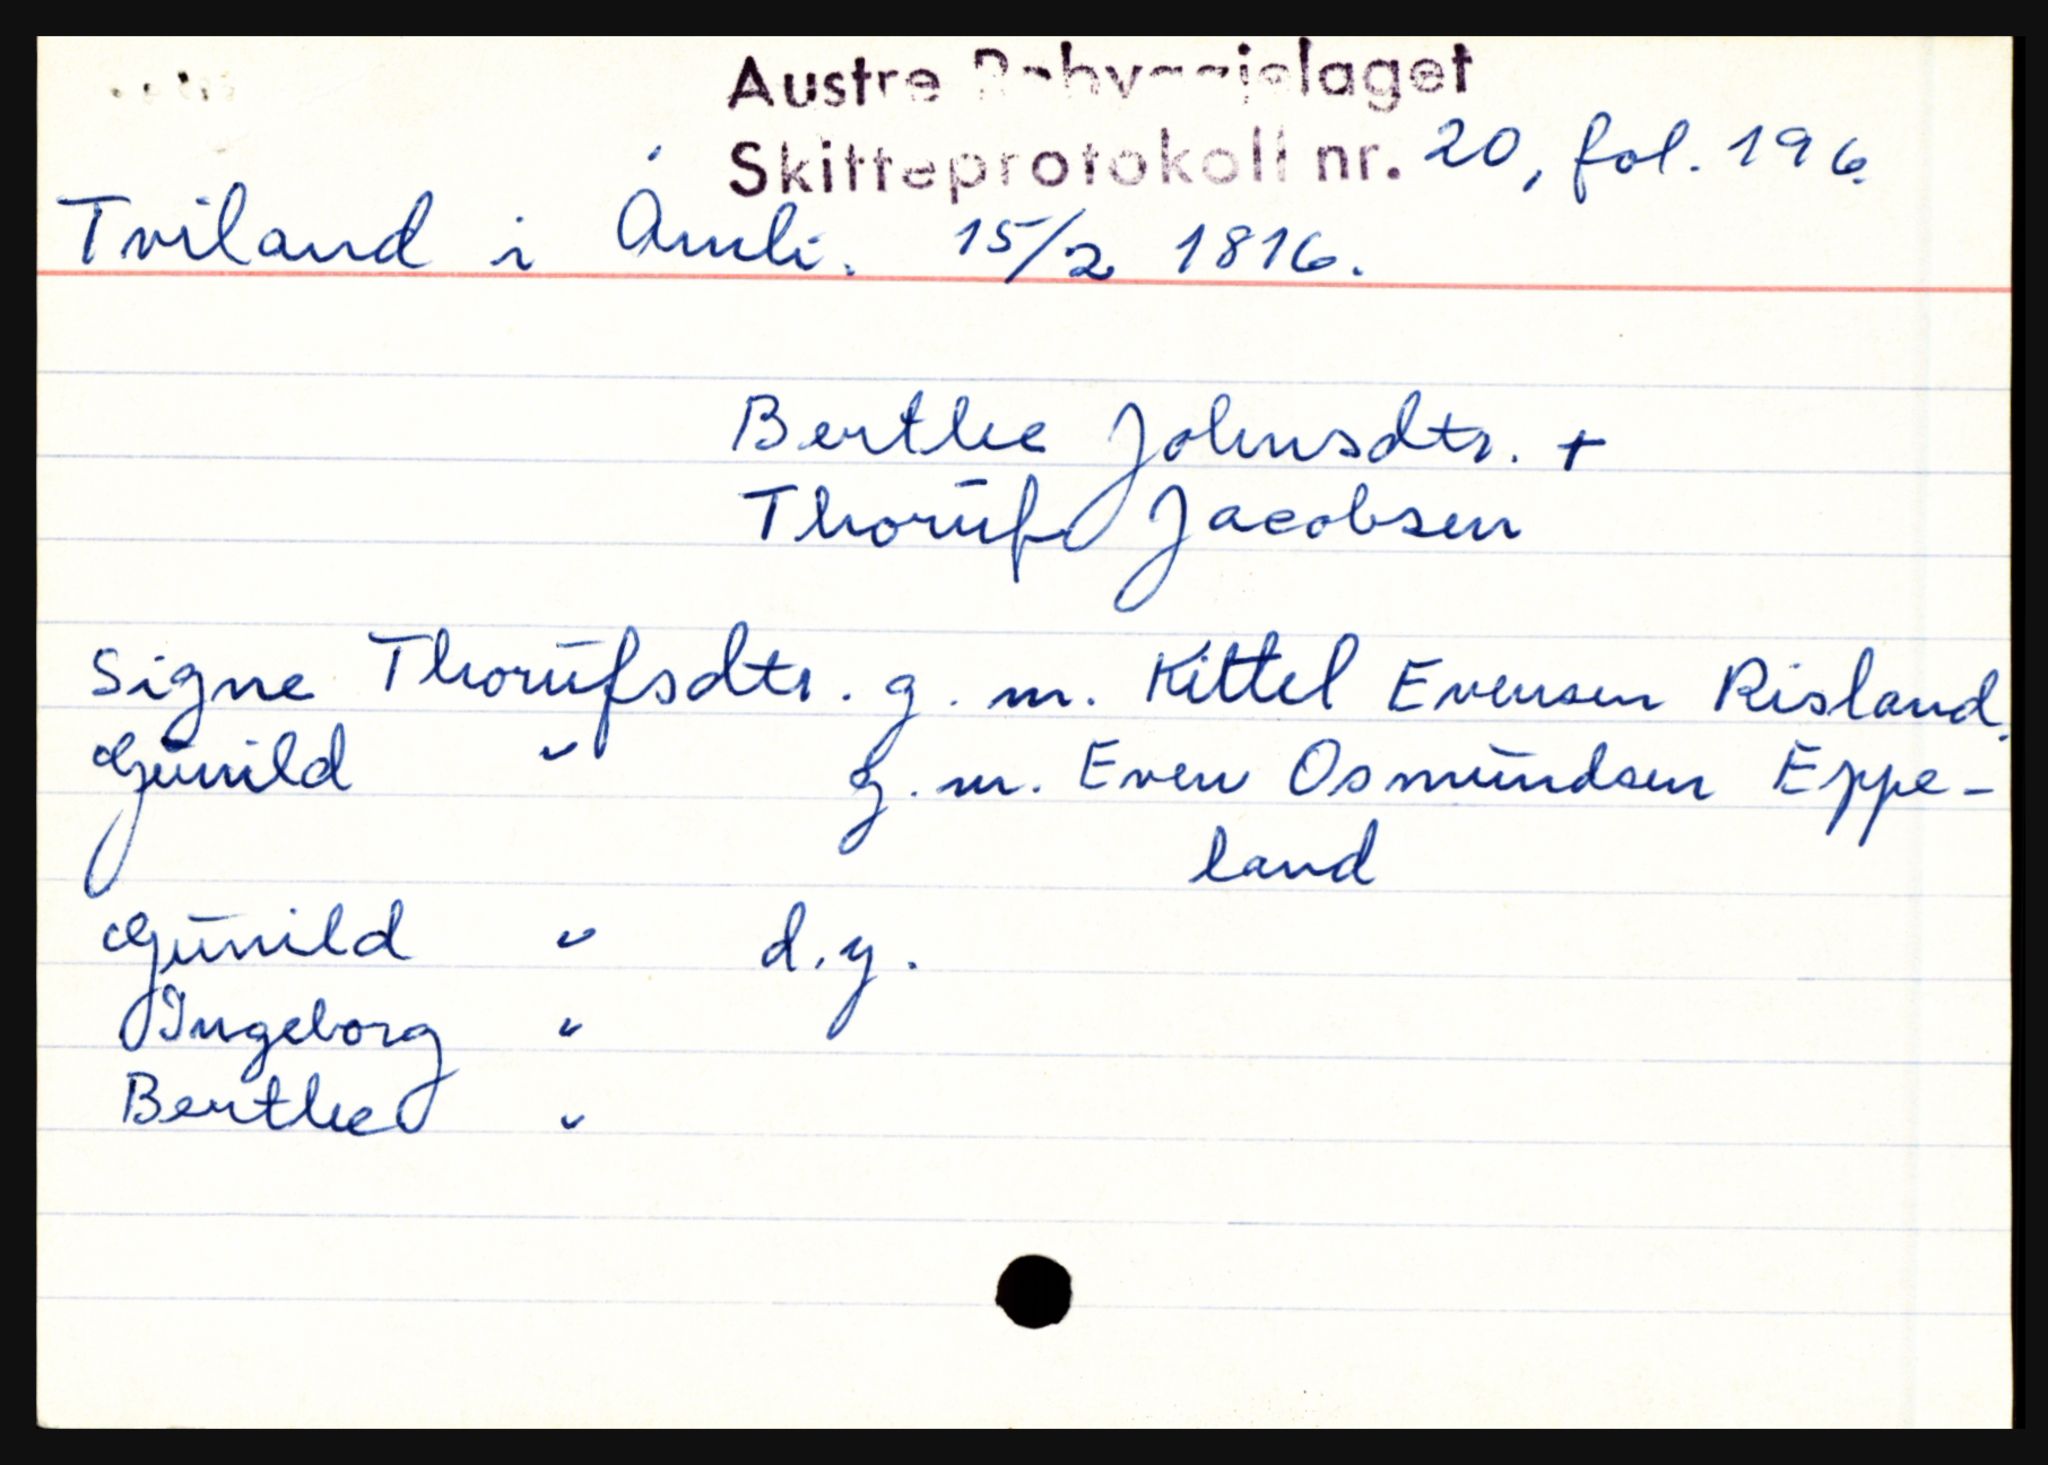 Austre Robyggjelaget
Skifteprotokoll nr. 20, fol. 196.
Tviland i Åmli. 15/2 1816.
Berthe Johnsdtr. +
Thorũf Jacobsen
Signe Thorũfsdtr. g. m. Kittel Evensen Risland.
Gũnild " g. m. Even Osmũndsen Eppe-
land
Gũnild " d.y.
Ingeborg "
Berthe "